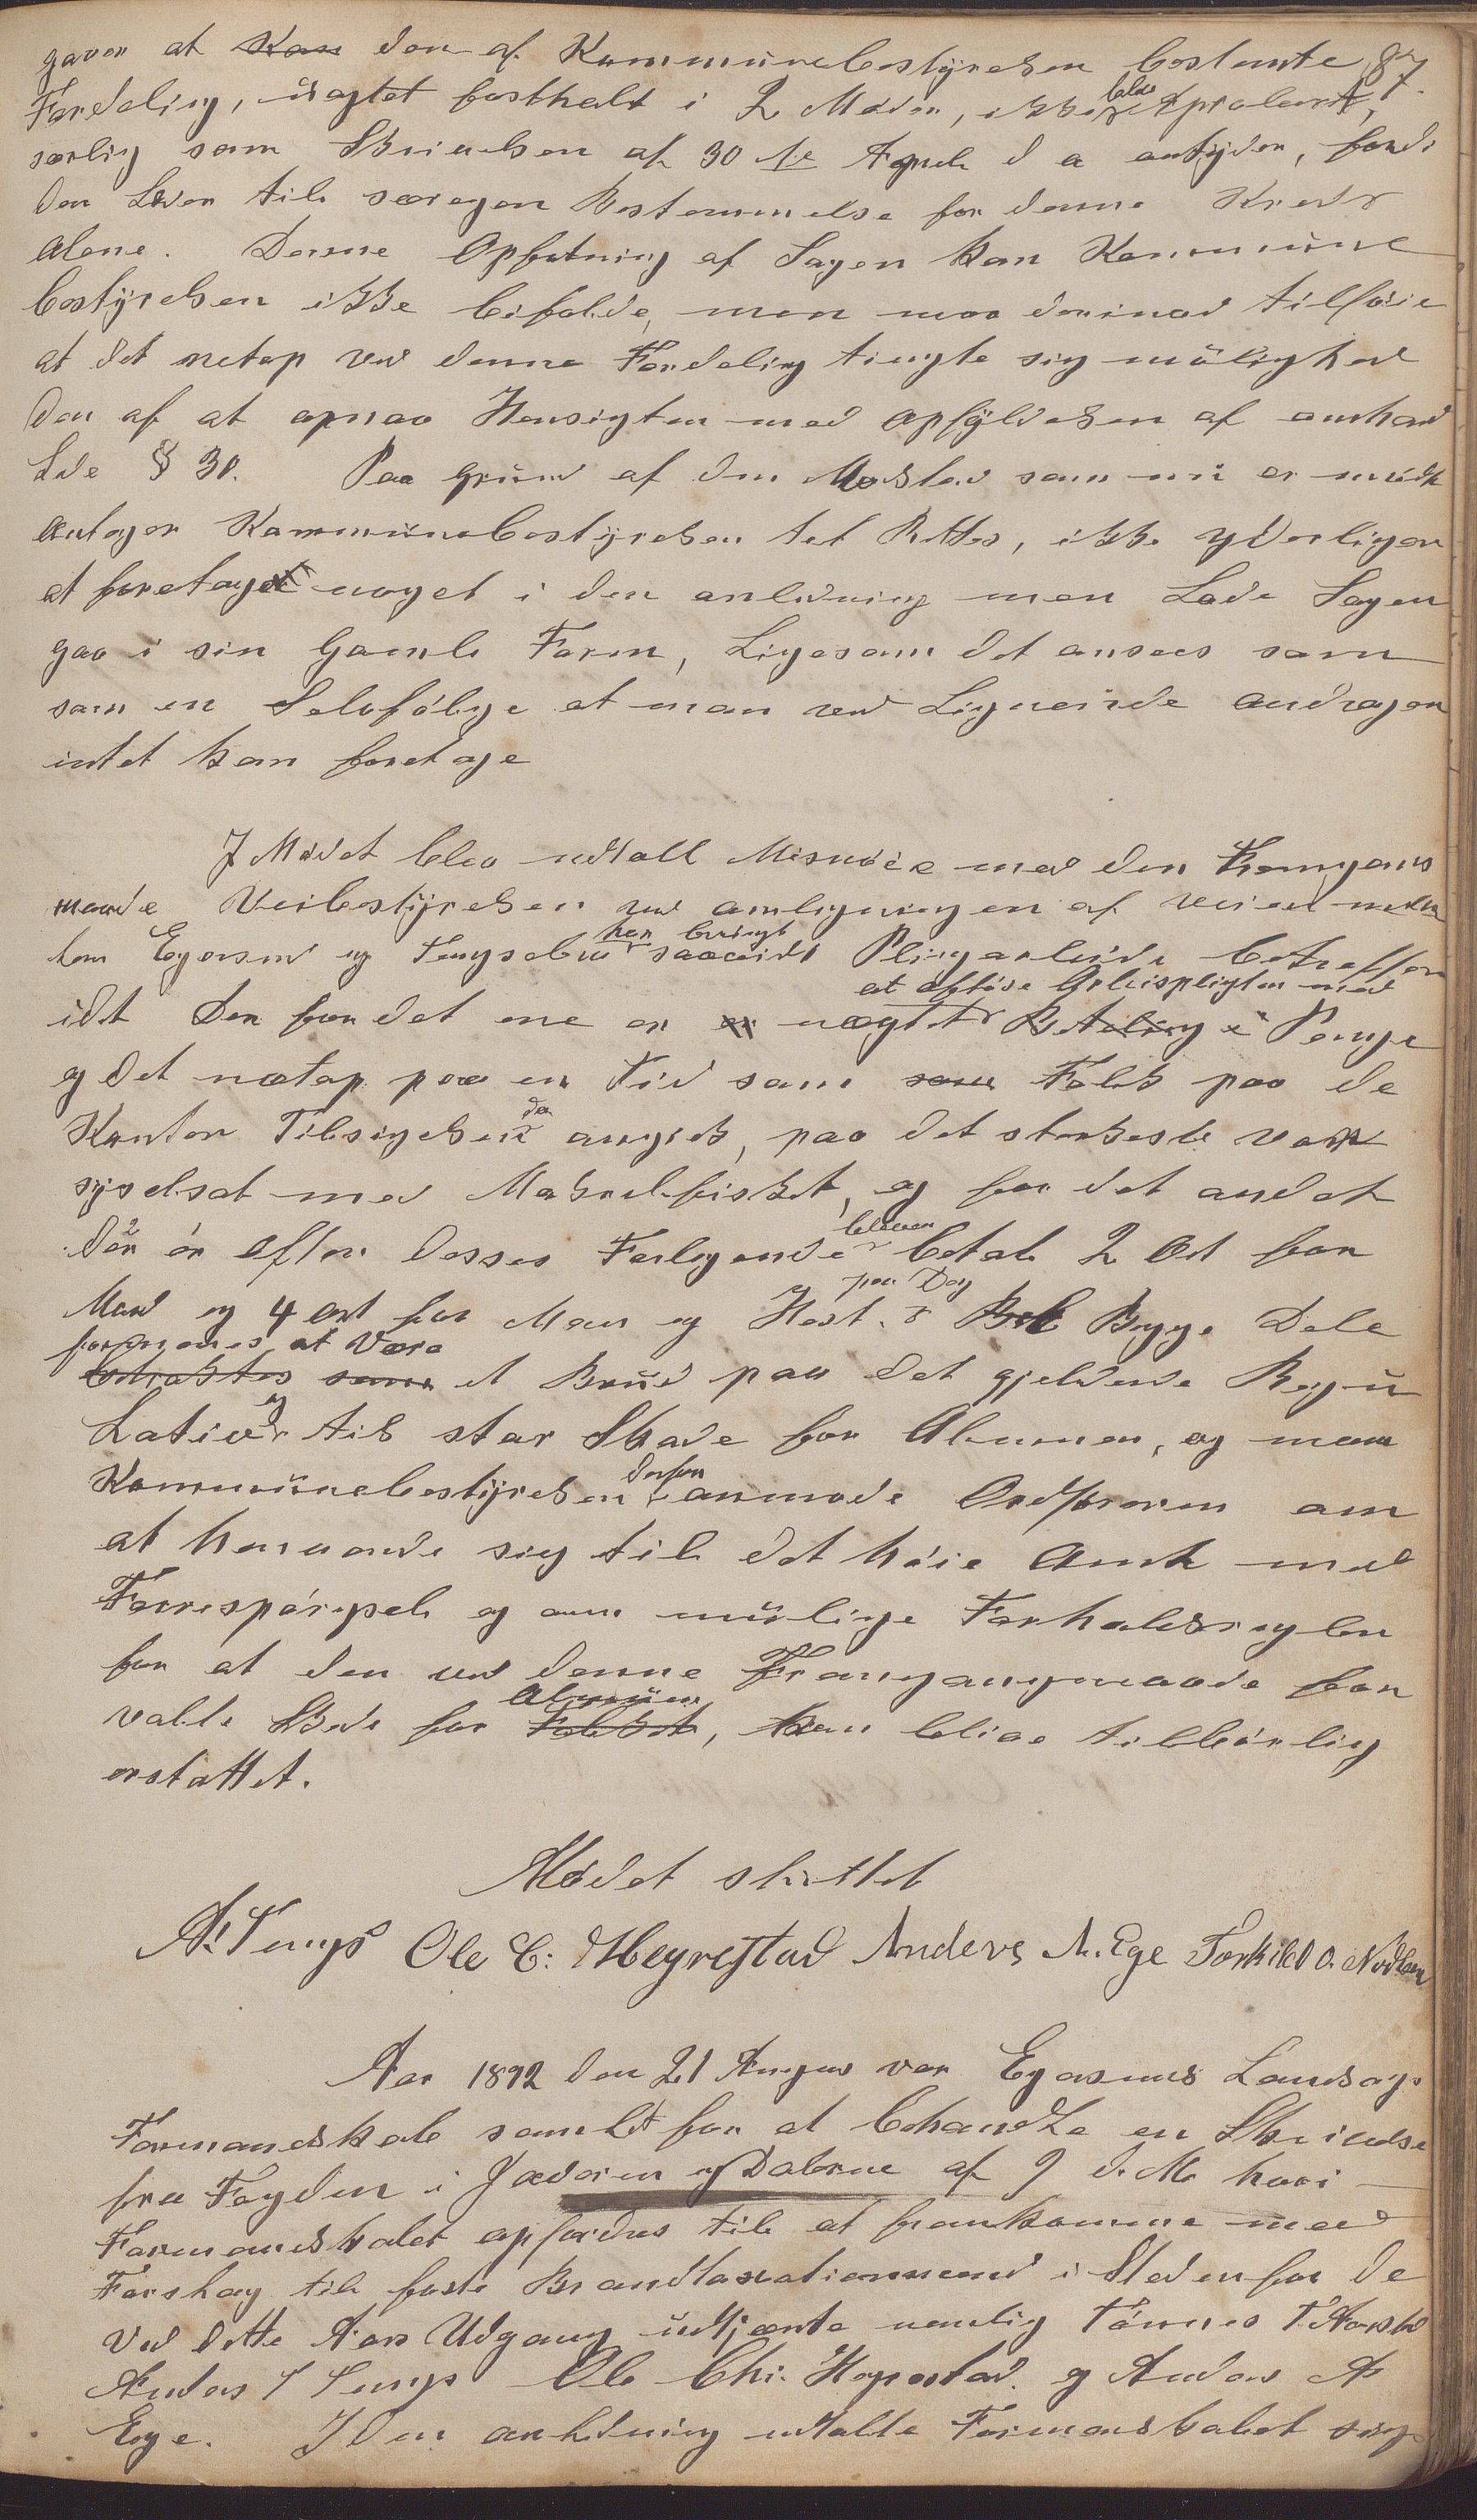 87.
gaven at Kan den af Kommünebestÿrelsen bestemte
Fordeling, üagtet fastholdt i 2 Møder, ikke blev Aproberet,
særlig som Skrivelsen af 30 te April d a antÿder, fordi
den Leder til særegen Bestemmelse for denne Kreds
alene. Denne Opfatning af Sagen kan Kommüne
bestÿrelsen ikke bifalde, men maa derimod tilføie
at det netop ved denne Fordeling tængte sig mülighed
den af at opnaa Hensigten med Opfÿldelsen af omhand
lede § 30. Paa gründ af den Modstand som nü er mødt
antager Kommünebestÿrelsen det Rettes, ikke yderligere
at foretage noget i den anledning men Lade Sagen
gaa i sin Gamle Form, Ligesom det ansees som
som en Selvfølge at man ved Lignende andragen
intet kan foretage
I Mødet blev udtalt Misnøie med den Fremgans
maade Veibestÿrelsen ved omligningen af veien mellem
lem Egersund og Tengsebro har brugt saavidt Pligarbeide betreffen
idet Der for det ene er er nægtet at afløse Arbeispligten med Betaling i Penge
og det netop paa en Tid som som Folk paa de
Kanter Tilsigelsen da angik, paa det sterkeste var
sÿselsat med Makrelfisket, og for det andet
der er efter desses Forlydende bleven betalt 2 Ort for
Mand og 4 Ort for Man og Hest. per Dag Bel Begge Dele
formenes at være betraktes som et Brüd paa det gjeldende Regü
Lativ og til stor Skade for Almuen, og maa
Kommünebestÿrelsen derfor anmode Ordføreren om
at henvende sig til det høie Amt med
Forespørgsel og om mülige Forholdsregler
for at den ved denne Fremgangsmaade for
valte Skade for Almüen Folket, kan blive tilbørlig
erstattet.
Mødet sluttet
A. Tengs Ole C: Heyrestad Anders A. Ege Torkild O. Nodland
Aar 1892 den 21 Augus var Egersunds Landsogs
Formandskab samlet for at behandle en Skrivelse
fra Fogden i Jæderen og Dalerne af 9 d. M. hvori
Formandskabet opfordres til at fremkomme med
Forslag til faste Brandtaxationsmend i Steden for de
ved dette Aars Udgang üdtjente nemlig Tønnes T.
Anders T Tengs Ole Chr. Hegrestad. og Anders A
Ege. I Den anledning udtalte Formandskabet sig